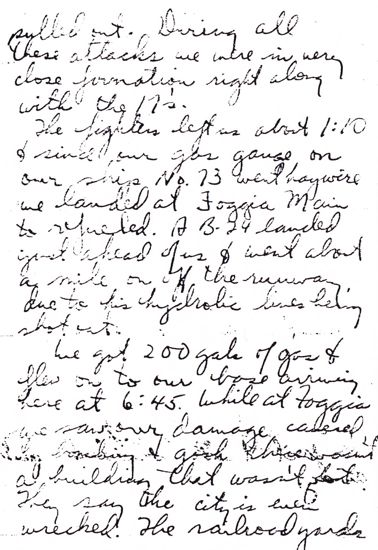 pulled out. During all
these attacks we were in very
close formation right along
with the 17's.
The fighters left us about 1:10
& since our gas gauge on
our ship No. 73 went haywire
we landed at Foggia Main
to refueled. A B-24 landed
just ahead of us & went about
a mile on off the runway,
due to his hydrolic lines being
shot out.
We got 200 gals of gas &
flew on to our base arriving
here at 6:45. While at Foggia
we saw our damage caused
by bombing & gosh there wasn't
a building that wasn't
They say the city is even
wrecked. The railroad yards